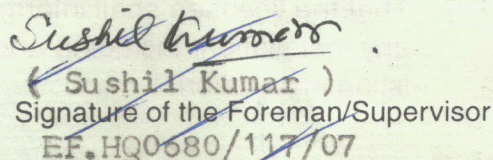 Sushil Kumar.
( Sushil Kumar )
Signature of the Foreman/Supervisor
EF.HQ0680/117/07